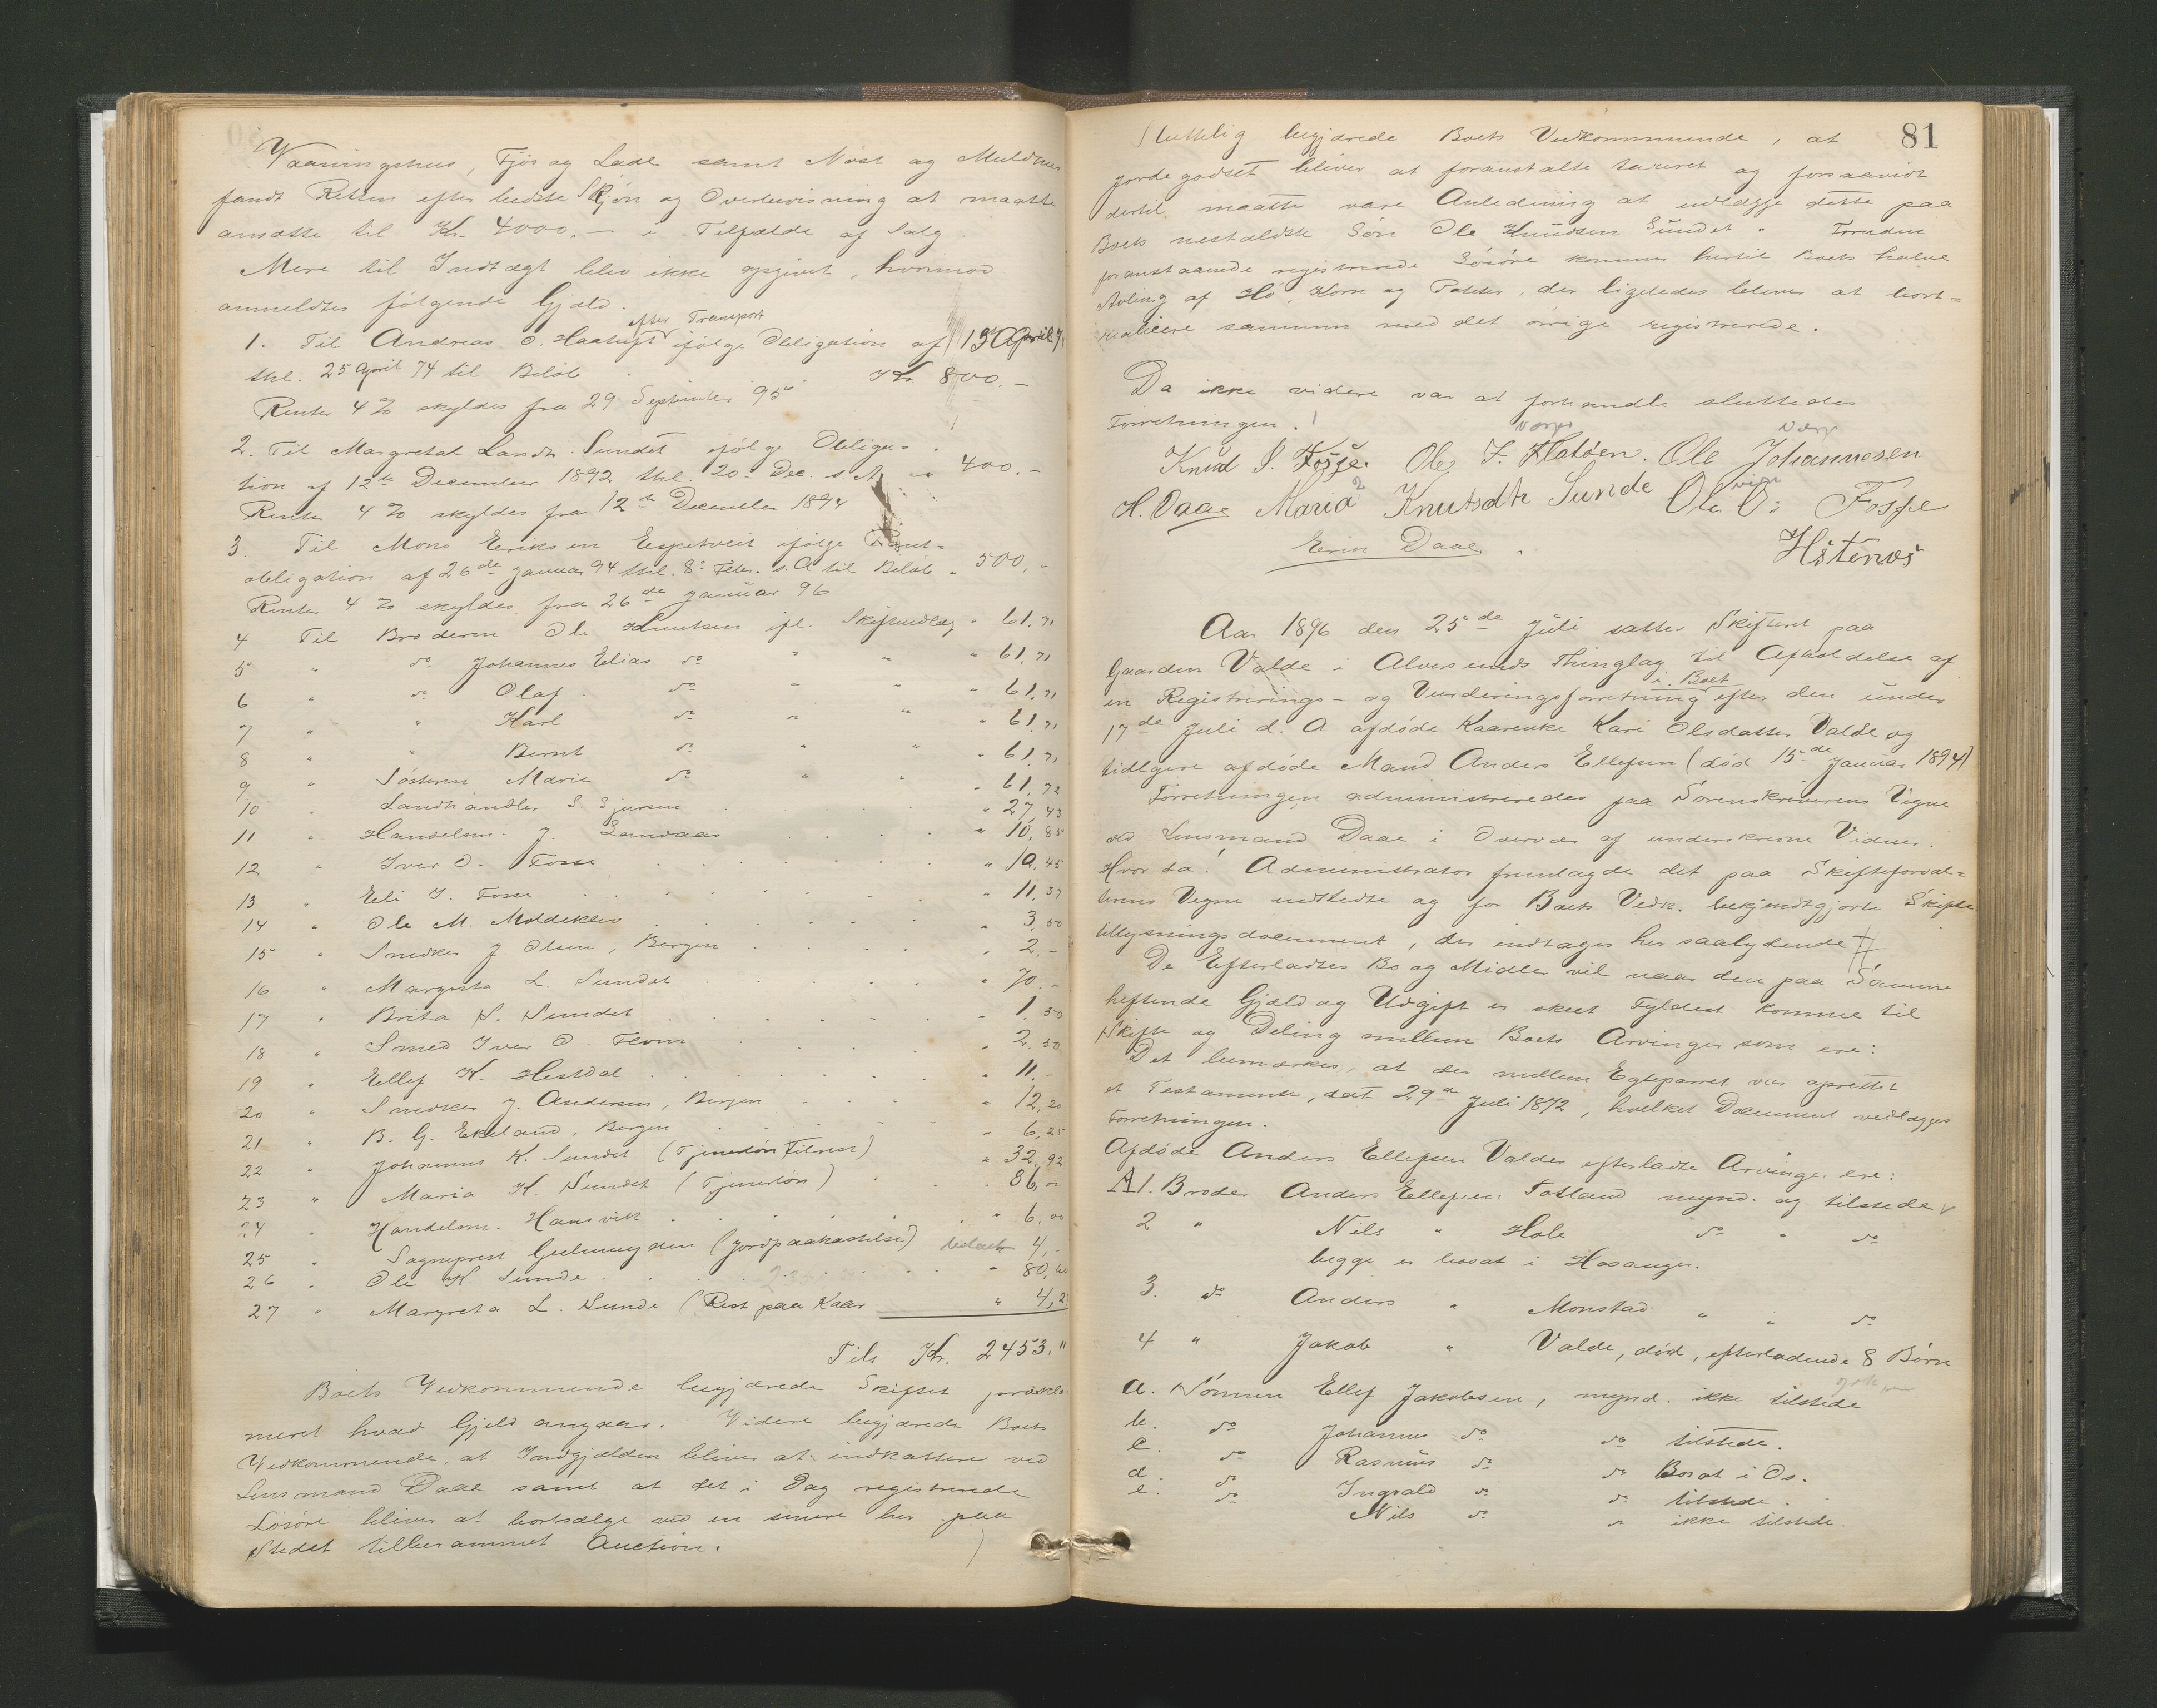 Vaaningshus, Fjøs og Lade samt Nøst og Muldhus
fandt Retten efter bedste Skjøn og Overbevisning at maatte
ansætte til Kr. 4000.- i Tilfælde af Salg.
Mere til Indtægt blev ikke opgivet, hvorimod
anmeldtes følgende Gjæld.
efter Transport
1. Til Andreas O. Haatuft ifølge Obligation af 13de April 74
thl. 25 April 74 til Beløb Kr. 800.-
Renter 4 % skyldes fra 29 September 95
2. Til Margretha Larsdr. Sundet ifølge Obliga-
tion af 12te December 1892 thl. 20. Dec. s. A. " 400.-
Renter 4 % skyldes fra 12te December 1894
3. Til Mons Eriksen Espetveit ifølge Pant-
obligation af 26de Januar 94 thl. 8. Febr. s. A til Beløb " 500,-
Renter 4 % skyldes fra 26de Januar 96
4 Til Broderen Ole Knutsen ifl. Skifteudlæg " 61,71
5 " do Johannes Elias do " " " 61,71
6 " do Olaf do " " " 61,71
7 " " Karl do " " " 61,71
8 " " Bernt do " " " 61,71
9 " Søsteren Marie do " " " 61,72
10 " Landhandler S. Sjursen " 27,43
11 " Handelsm. J. Landaas " 10,85
12 " Iver O. Fosse " 10,45
13 " Eli J. Fosse " 11,37
14 " Ole M. Moldeklev " 3,50
15 " Snedker J. Olsen, Bergen " 2.-
16 " Margreta L. Sundet " 70.-
17 " Brita N. Sundet " 1.50
18 " Smed Iver O. Flom " 2.50
19 " Ellef K. Hestdal " 11.-
20 " Snedker J. Andersen, Bergen " 12,20
21 " B. G. Ekeland, Bergen " 6,25
22 " Johannes K. Sundet (Tjenerløn Tilrest) " 32,92
23 " Maria K. Sundet (Tjenerløn) 36,00
24 " Handelsm. Hansvik " 6,00
25 " Sogneprest (Jordpaakastelse) 4,-
26 " Ole K. Sunde " 80,60
27 " Margreta L. Sunde (Rest paa Kaar " 4,2
Tils Kr. 2453."
Boets Vedkommende begjærede Skiftet prækla-
meret hvad Gjeld angaar. Videre begjærede Boets
Vedkommende, at Indgjælden bliver at indkassere ved
Lensmand Daae samt at det i Dag registrerede
Løsøre bliver at bortsælge ved en senere her paa
Stedet tilberammet Auction.
81
Sluttelig begjærede Boets Vedkommende, at
jordegodset bliver at foranstalte taxeret og forsaavidt
dertil maatte være Anledning at udlægge dette paa
Boets nestældste Søn Ole Knudsen Sundet. Foruden
foranstaaende registrerede Løsøre kommer hertil Boets halve
Avling af Hø, Korn og Poteter, der ligeledes bliver at bort-
realicere sammen med det øvrige registrerede.
Da ikke videre var at forhandle sluttedes
Forretningen.
værge værge
Knud I. Fosse. Ole J. Flatøen. Ole Johannesen
H. Daae Maria Knutsdtr Sunde Ole O. Fosse
Erik Daae H Stenøs
Aar 1896 den 25de Juli sattes Skifteret paa
Gaarden Valde i Alversunds Thinglag til Afholdelse af
i Boet
en Registrerings- og Vurderingsforretning efter den under
17de Juli d. A afdøde Kaarenke Kari Olsdatter Valde og
tidlgere afdøde Mand Anders Ellefsen (død 15de Januar 1894)
Forretningen administreredes paa Sorenskriverens Vegne
ved Lensmand Daae i Overvær af underskrevne Vidner.
Hvor da! Administrator fremlagde det paa Skifteforval-
terens Vegne udstedte og for Boets Vedk. bekjendtgjorte Skifte-
tillysningsdocument, der indtages her saalydende #
De Efterladtes Bo og Midler vil naar den paa Samme
heftende Gjæld og Udgift er skeet Fyldest komme til
Skifte og Deling mellem Boets Arvinger som ere:
Det bemærkes, at der mellem Egteparret var oprettet
et Testamente, dat 29de Juli 1872, hvilket Document vedlægges
Forretningen.
Afdøde Anders Ellefsen Valdes efterladte Arvinger ere:
A 1. Broder Anders Ellefsen Totland mynd. og tilstede
2 " Nils " Hole do " do
begge er bosat i Hosanger.
3. do Anders " Monstad " " do
4 " Jakob " Valde, død, efterladende 8 Børn
a. Sønnen Ellef Jakobsen, mynd. ikke tilstede
b. do Johannes do do tilstede.
c. do Rasmus do do Bosat i Os.
d. do Ingvald do do tilstede.
e. do Nils do do ikke tilstede.